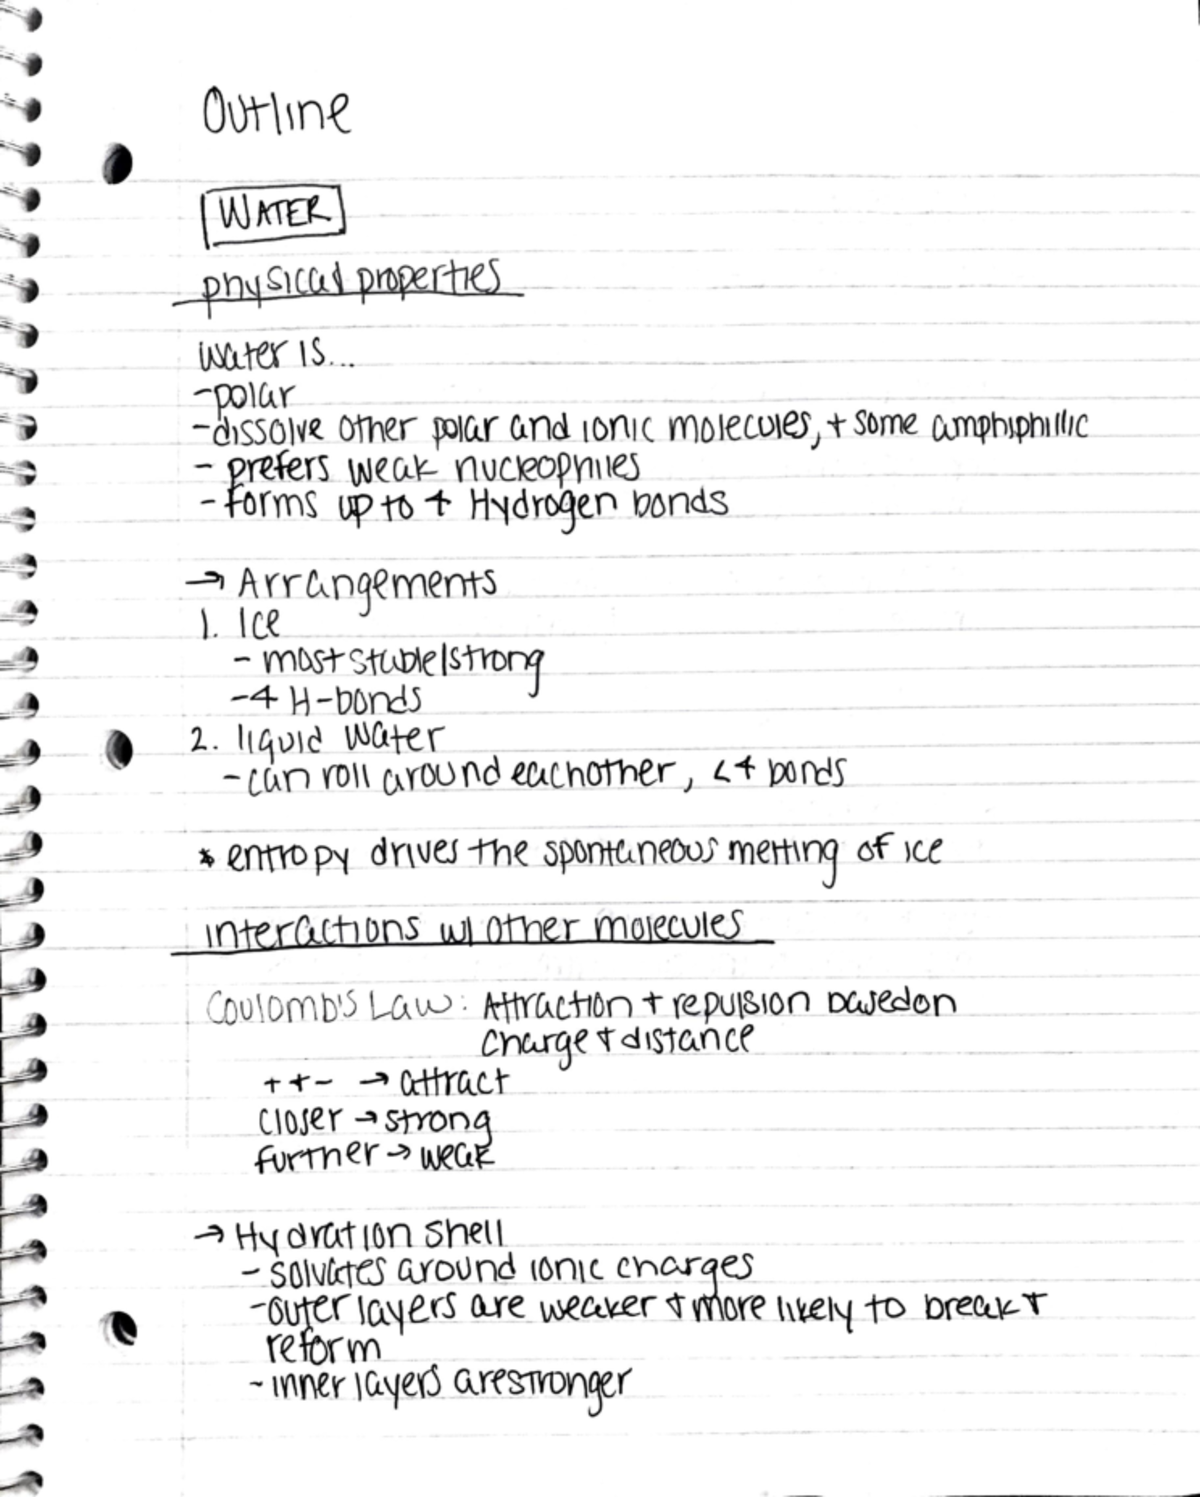 Outline
WATER
physical properties
water is...
-polar
-dissolve other polar and ionic molecules, + some amphiphillic
- prefers weak nucleophiles
- forms up to 4 Hydrogen bonds
→ Arrangements
1. Ice
- most stable/strong
-4 H-bonds
2. liquid water
-can roll around eachother, <4 bonds
* entropy drives the spontaneous melting of ice
interactions w/ other molecules
Coulomb's Law: Attraction + repulsion based on
charge + distance
+ + - → attract
closer → strong
further → weak
→ Hydration shell
- solvates around ionic charges
-outer layers are weaker + more likely to break +
reform
- inner layers are stronger